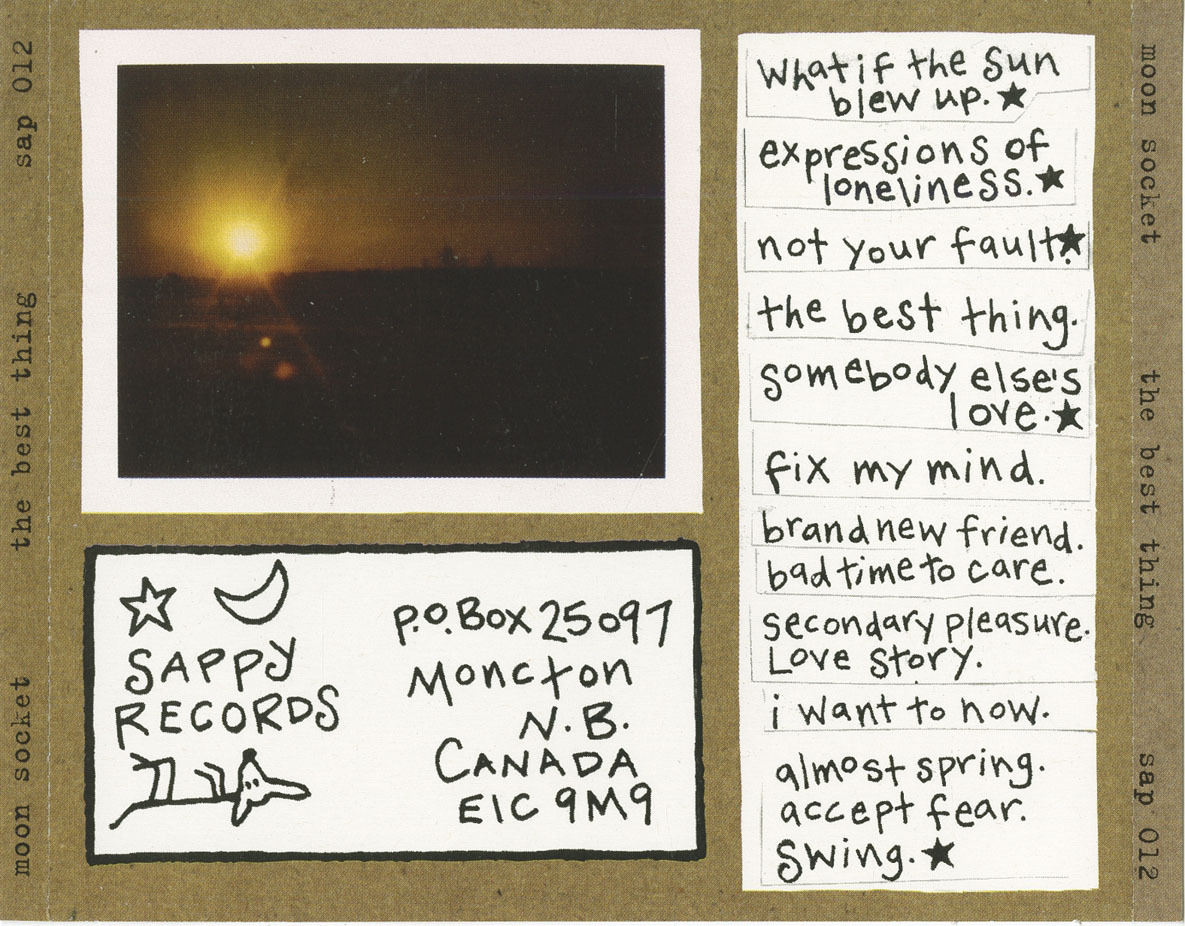 moon socket the best thing sap 012
SAPPY
RECORDS
P.O. Box 25097
Moncton
N.B.
CANADA
E1C 9M9
what if the sun
blew up. ★
expressions of
loneliness. ★
not your fault. ★
the best thing.
somebody else's
love. ★
fix my mind.
brand new friend.
bad time to care.
secondary pleasure.
Love story.
i want to now.
almost spring.
accept fear.
swing. ★
moon socket the best thing sap 012